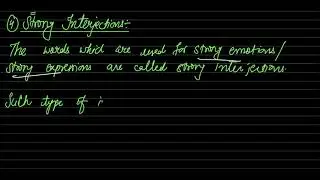 ④ Strong Interjections:-
The words which are used for strong emotions/
strong expressions are called strong Interjections.
Such type of i